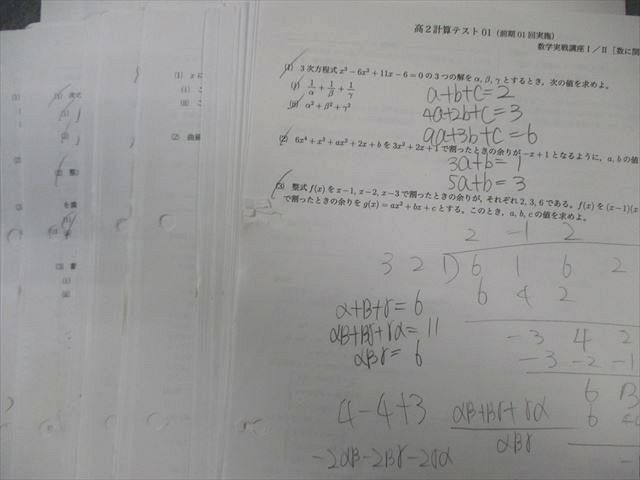 高2計算テスト01（前期01回実施）
数学実戦講座Ⅰ／Ⅱ［数に関
(1) 3次方程式 x³−6x²+11x−6=0の3つの解をα, β, γとするとき，次の値を求めよ。
(i) 1/α + 1/β + 1/γ
(ii) α²+β²+γ²
a+b+c=2
4a+2b+c=3
9a+3b+c=6
(2) 6x⁴+x³+ax²+2x+bを3x²+2x+1で割ったときの余りが−x+1となるように，a, bの値
3a+b=1
5a+b=3
(3) 整式f(x)をx−1, x−2, x−3で割ったときの余りが，それぞれ2, 3, 6である。f(x)を(x−1)(x
で割ったときの余りをg(x)=ax²+bx+cとする。このとき，a, b, cの値を求めよ。
2 -1 2
3 2 1) 6 1 6 2
6 4 2
-3 4 2
-3 -2 -1
6
6
α+β+γ=6
αβ+βγ+γα=11
αβγ=6
4-4+3
αβ+βγ+γα
αβγ
-2αβ-2βγ-2γα
(1)
(2)
(3)
(1) xに
(i) こ
(ii) こ
(2) 曲線